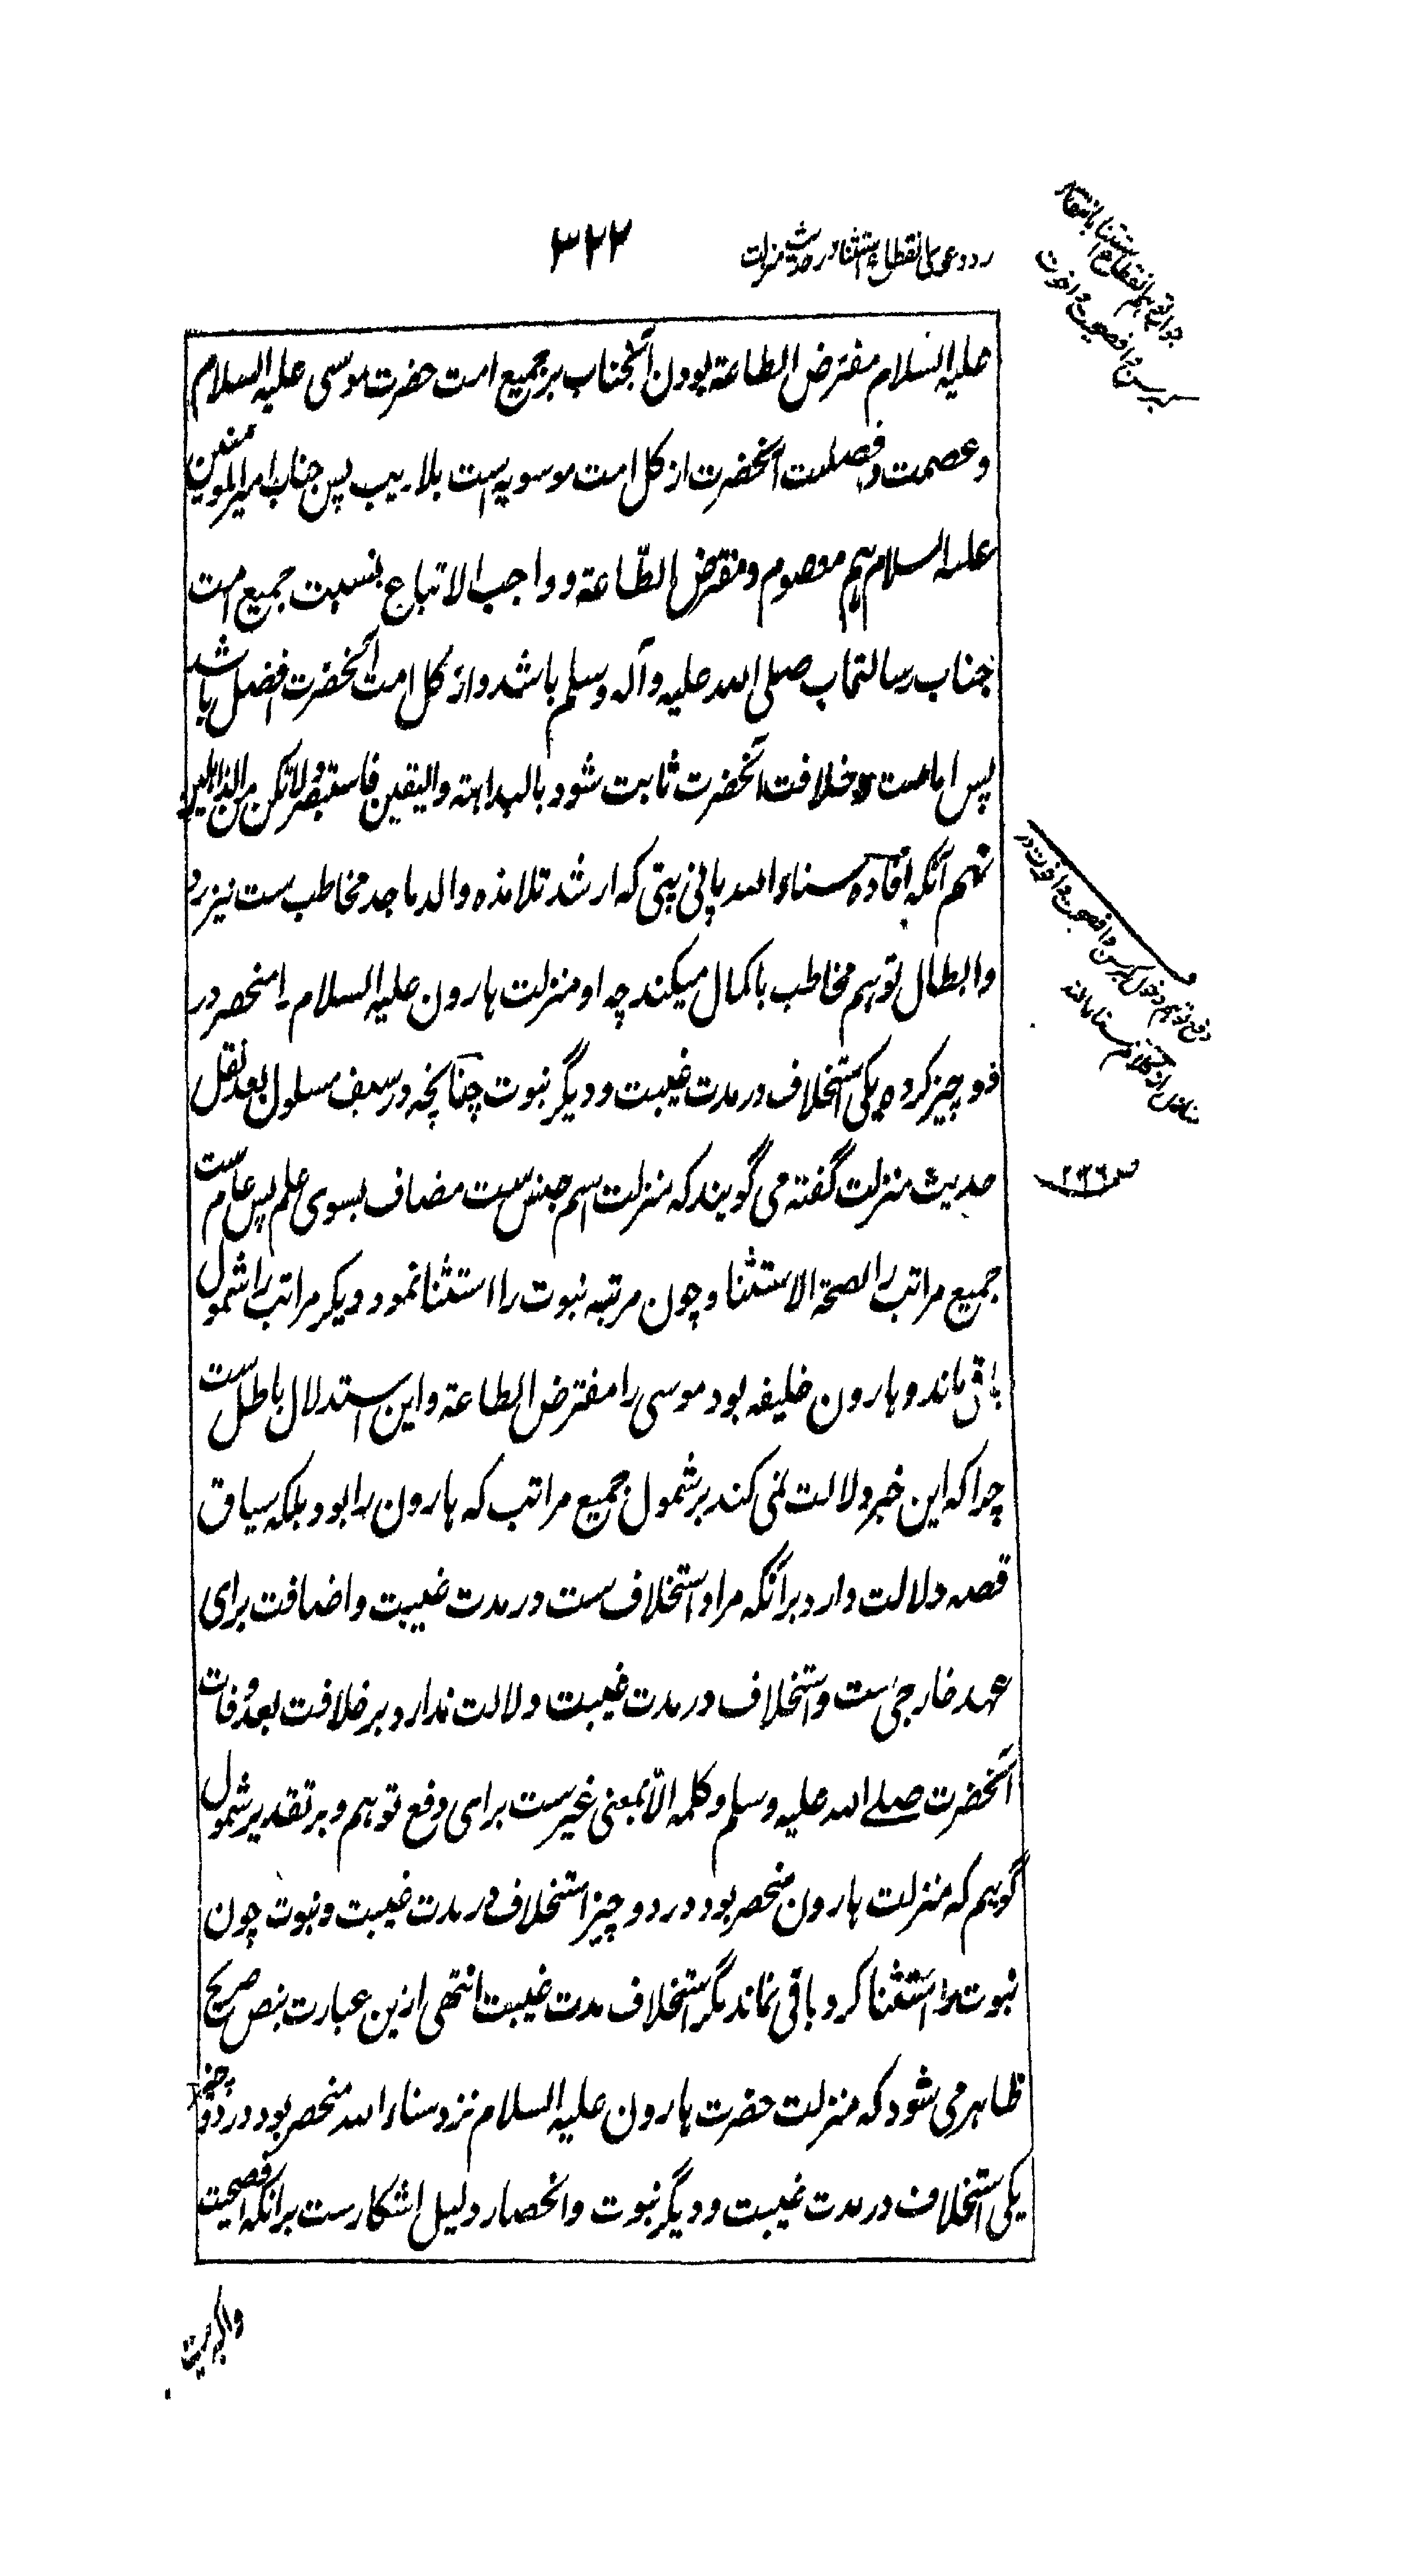 رد دعوی انقطاع استثنا در حدیث منزلت
۳۲۲
علیه السلام مفترض الطاعة بودن آنجناب بر جمیع امت حضرت موسی علیه السلام
و عصمت و افضلیت آنحضرت از کل امت موسویه است بلا ریب پس جناب امیر المومنین
علیه السلام هم معصوم و مفترض الطّاعة و واجب الاتباع بنسبت جمیع امت
جناب رسالتمآب صلی الله علیه و آله و سلم باشد و از کل امت آنحضرت افضل باشد
پس امامت و خلافت آنحضرت ثابت شود بالبداهة و الیقین فاستبصر و لا تکن من الذاهلین
نهم آنکه افاده سناء الله پانی پتی که ارشد تلامذه والد ماجد مخاطب ست نیز رد
و ابطال توهم مخاطب با کمال میکند چه او منزلت هارون علیه السلام را منحصر در
دو چیز کرده یکی استخلاف در مدت غیبت و دیگر نبوت چنانچه در سیف مسلول بعد نقل
حدیث منزلت گفته می گویند که منزلت اسم جنس ست مضاف بسوی علم پس عام ست
جمیع مراتب را لصحة الاستثنا و چون مرتبه نبوت را استثنا نمود دیگر مراتب را شمول
باقی ماند و هارون خلیفه بود موسی را مفترض الطاعة و این استدلال باطل ست
چرا که این خبر دلالت نمی کند بر شمول جمیع مراتب که هارون را بود بلکه سیاق
قصه دلالت دارد برآنکه مراد استخلاف ست در مدت غیبت و اضافت برای
عهد خارجی ست و استخلاف در مدت غیبت دلالت ندارد بر خلافت بعد وفات
آنحضرت صلے الله علیه و سلم و کلمه الّا بمعنی غیر ست برای دفع توهم و بر تقدیر شمول
گوییم که منزلت هارون منحصر بود در دو چیز استخلاف در مدت غیبت و نبوت چون
نبوت را استثنا کرد باقی نماند مگر استخلاف مدت غیبت انتهی ازین عبارت بنص صریح
ظاهر می شود که منزلت حضرت هارون علیه السلام نزد سناء الله منحصر بود در دو چیز
یکی استخلاف در مدت غیبت و دیگر نبوت و انحصار دلیل آشکار ست برآنکه افصحیت
و اکبریت
جواب توهم انقطاع استثنا بانتفاء
اکبر سن و افصحیت و اخوت
دفع توهم دخول اکبر سن و افصحیت و اخوت در
منازل از کلام سناء الله
ص ۲۳۶